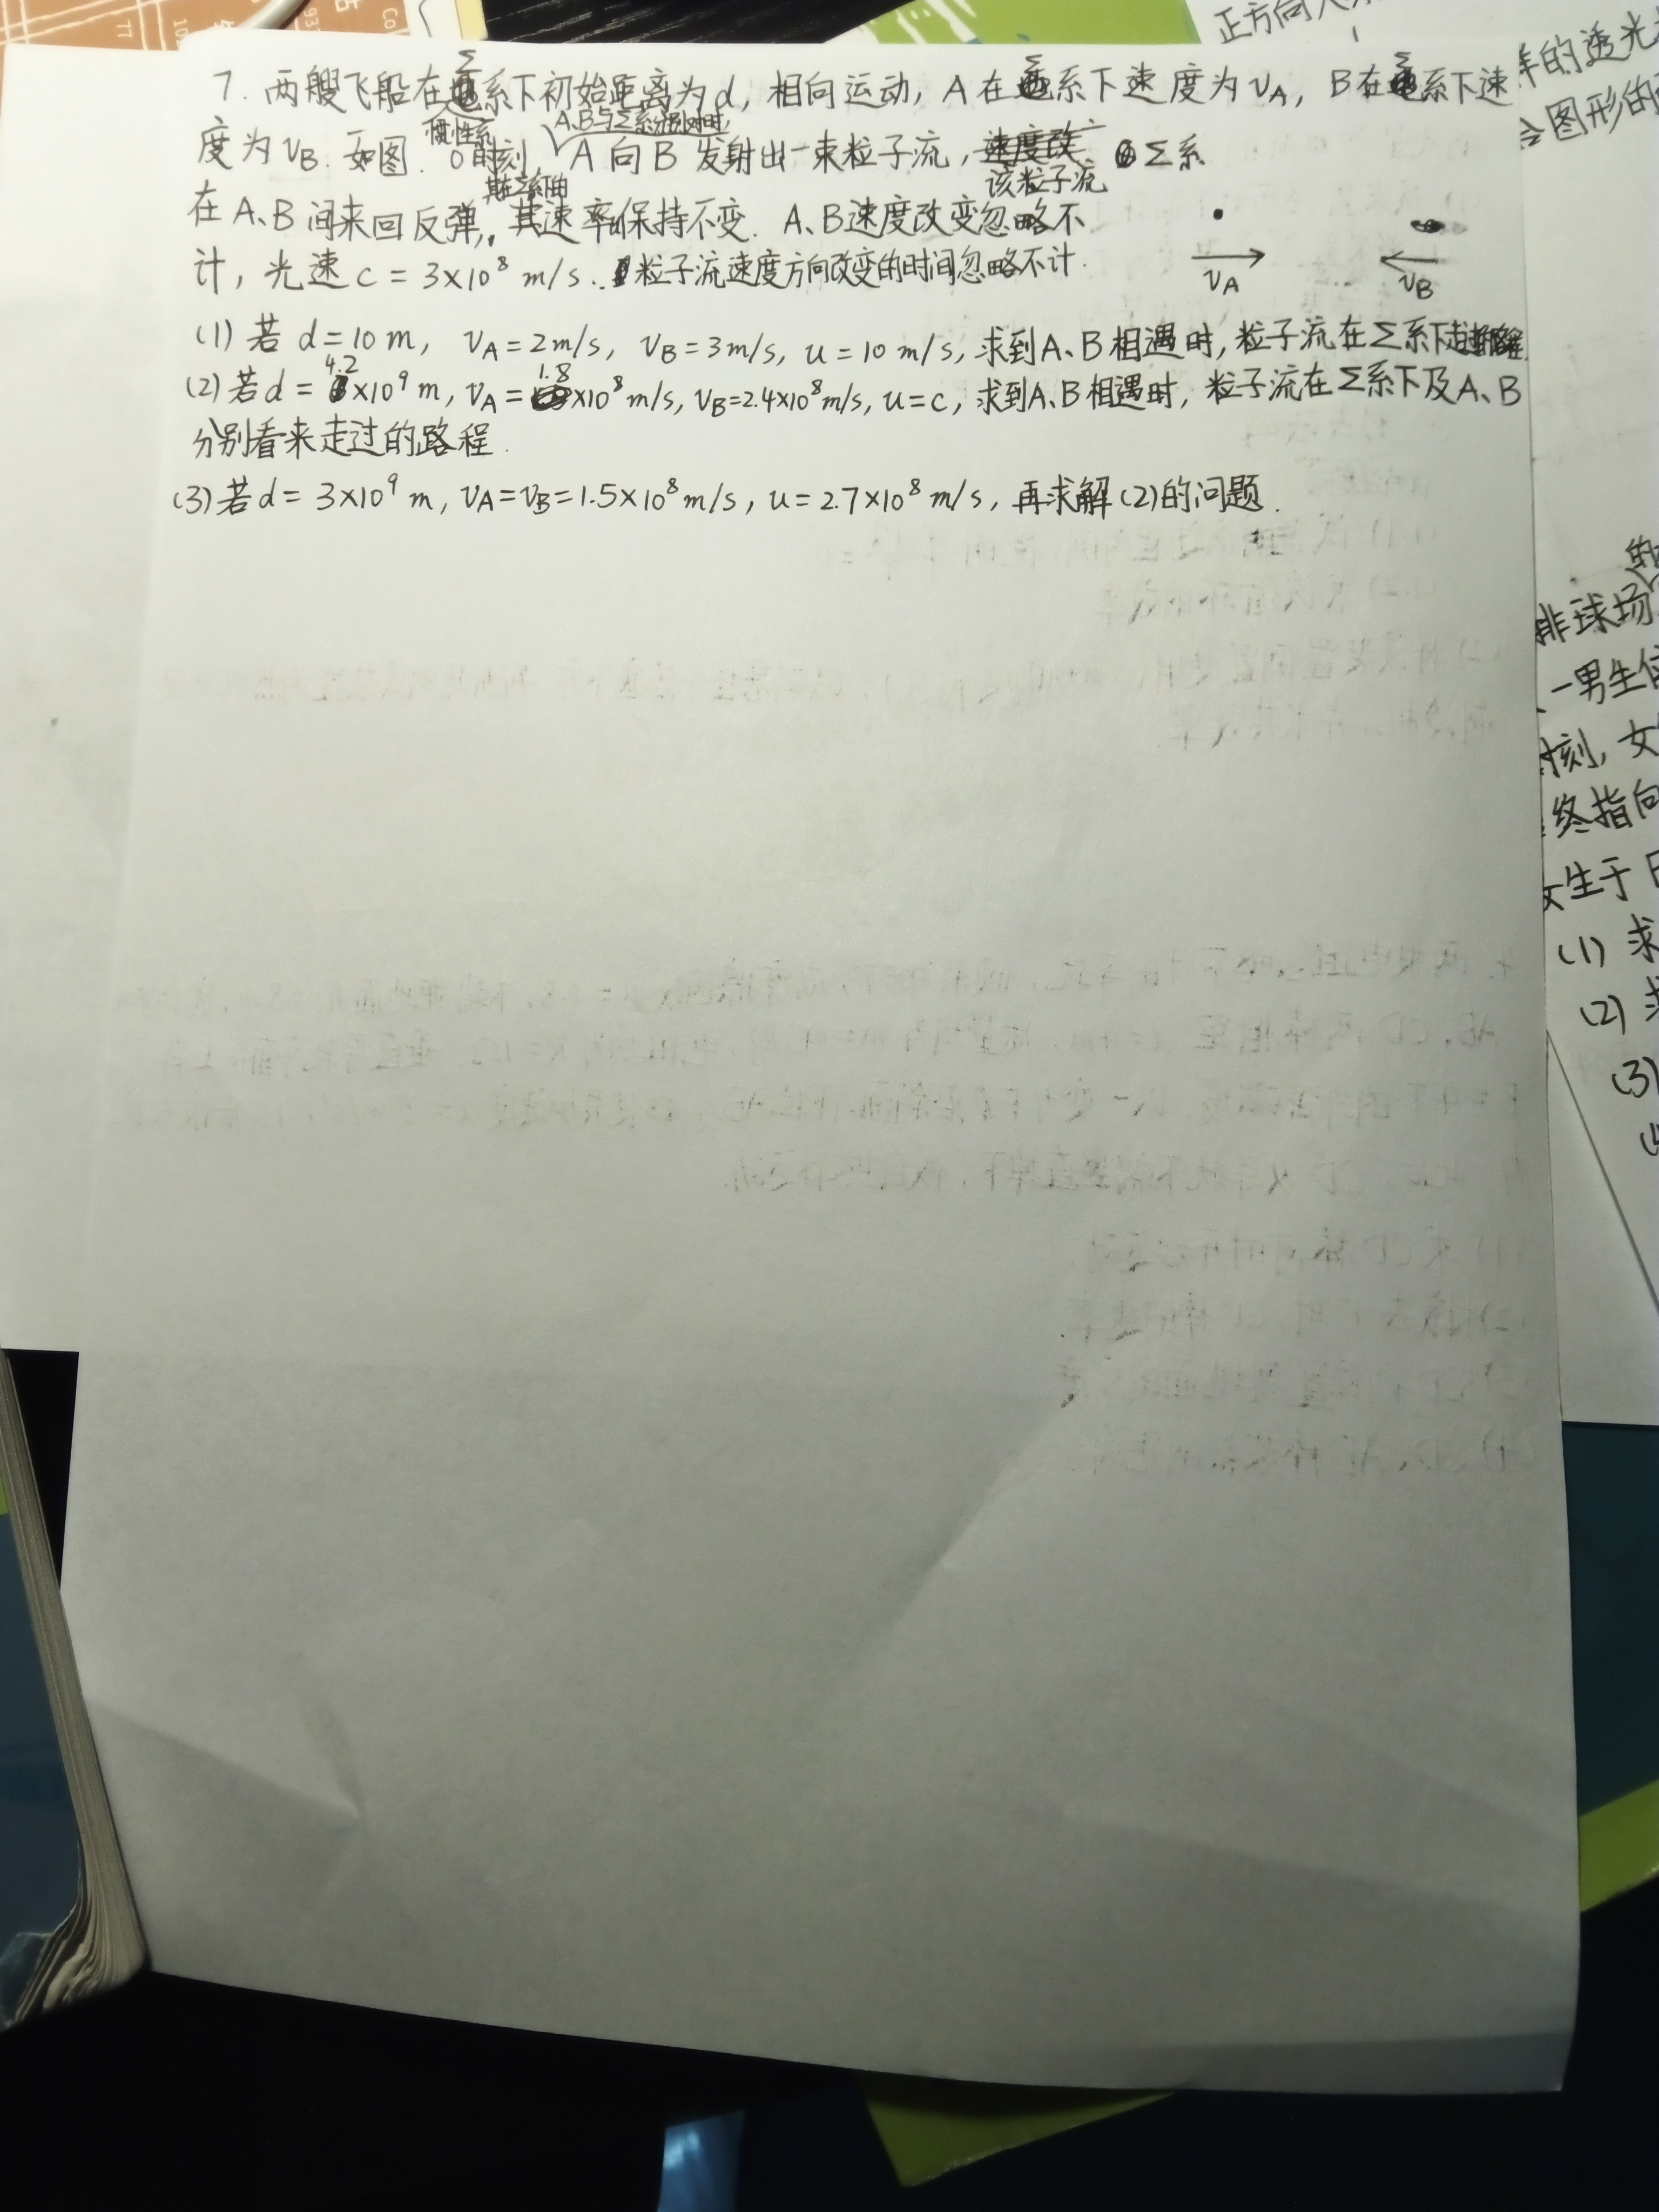 7. 两艘飞船在Σ系下初始距离为d, 相向运动, A在Σ系下速度为vA, B在Σ系下速
惯性系
A、B与Σ系
度为vB. 如图. 0时刻, A向B发射出一束粒子流, 速度改 Σ系
其在Σ系中
该粒子流
在A、B间来回反弹, 其速率u保持不变. A、B速度改变忽略不
计, 光速c = 3×10⁸ m/s. 粒子流速度方向改变的时间忽略不计.
vA
vB
(1) 若 d=10m, vA=2m/s, vB=3m/s, u=10m/s, 求到A、B相遇时, 粒子流在Σ系下走过
(2) 若d= 4.2×10⁹m, vA=1.8×10⁸m/s, vB=2.4×10⁸m/s, u=c, 求到A、B相遇时, 粒子流在Σ系下及A、B
分别看来走过的路程.
(3) 若d= 3×10⁹m, vA=vB=1.5×10⁸m/s, u=2.7×10⁸m/s, 再求解(2)的问题.
正方向
样的透光
图形的
的
排球场
一男生位
时刻, 女
终指向
女生于
(1) 求
(2) 求
(3)